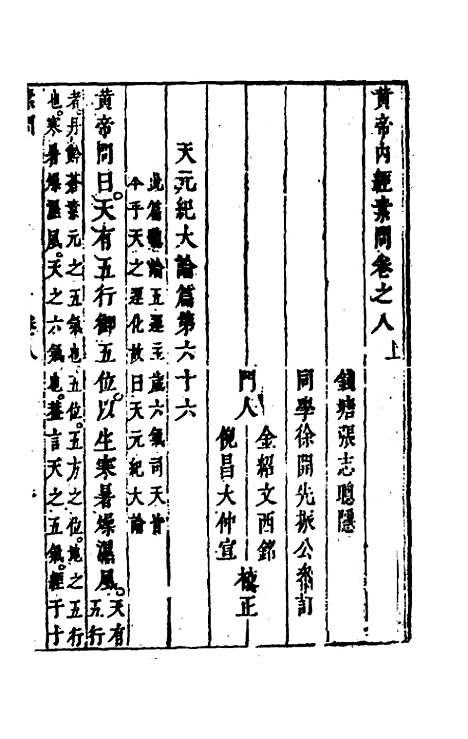 黄帝內經素問卷之八上
錢塘張志聰隱
同學徐開先振公叅訂
門人
金紹文西銘
倪昌大仲宣
校正
天元紀大論篇第六十六
此篇總論五運主歲六氣司天皆
本乎天之運化故曰天元紀大論
黄帝問曰。天有五行御五位。以生寒暑燥濕風。天有
五行
者。丹黅蒼素元之五氣也五位。五方之位。地之五行
也。寒暑燥濕風。天之六氣也。葢言天之五氣。經于十
素問
卷八